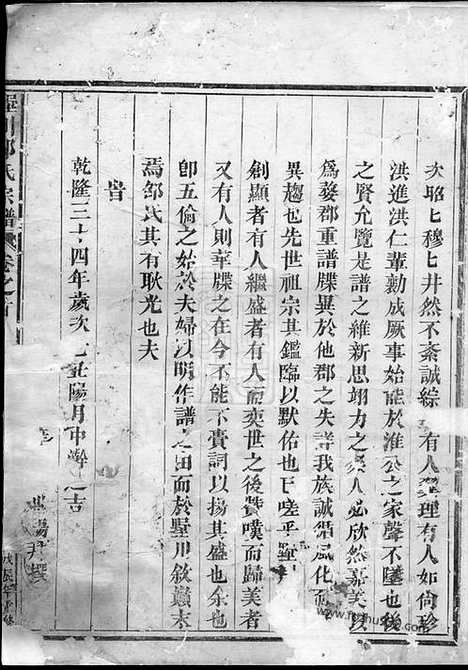 次昭七穆七井然不紊誠綜 有人 理有人如尙珍
洪進洪仁輩勷成厥事始能於淮公之家聲不墜也後
之賢允覽是譜之維新思翊力之 人必欣然嘉美以
爲婺郡重譜牒異於他郡之失 我族誠 風化而
異趨也先世祖宗其鑑臨以默佑也已嗟乎
創顯者有人繼盛者有人而奕世之後贊嘆而歸美者
又有人則華牒之在今不能不賁詞以揚其盛也余也
卽五倫之始於夫婦以明作譜之由而於墅川敘巔末
焉邹氏其有耿光也夫
旹
乾隆三十四年歲次 丑陽月中澣 吉
 撰
 川 氏宗譜 卷之首